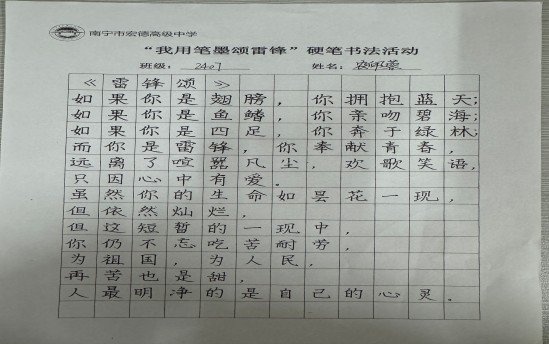 南宁市宏德高级中学
“我用笔墨颂雷锋”硬笔书法活动
班级： 2407 姓名：
《雷锋颂》
如果你是翅膀，你拥抱蓝天；
如果你是鱼鳍，你亲吻碧海；
如果你是四足，你奔于绿林；
而你是雷锋，你奉献青春，
远离了喧嚣凡尘，欢歌笑语，
只因心中有爱。
虽然你的生命如昙花一现，
但依然灿烂，
但这短暂的一现中，
你仍不忘吃苦耐劳，
为祖国，为人民，
再苦也是甜，
人最明净的是自己的心灵。